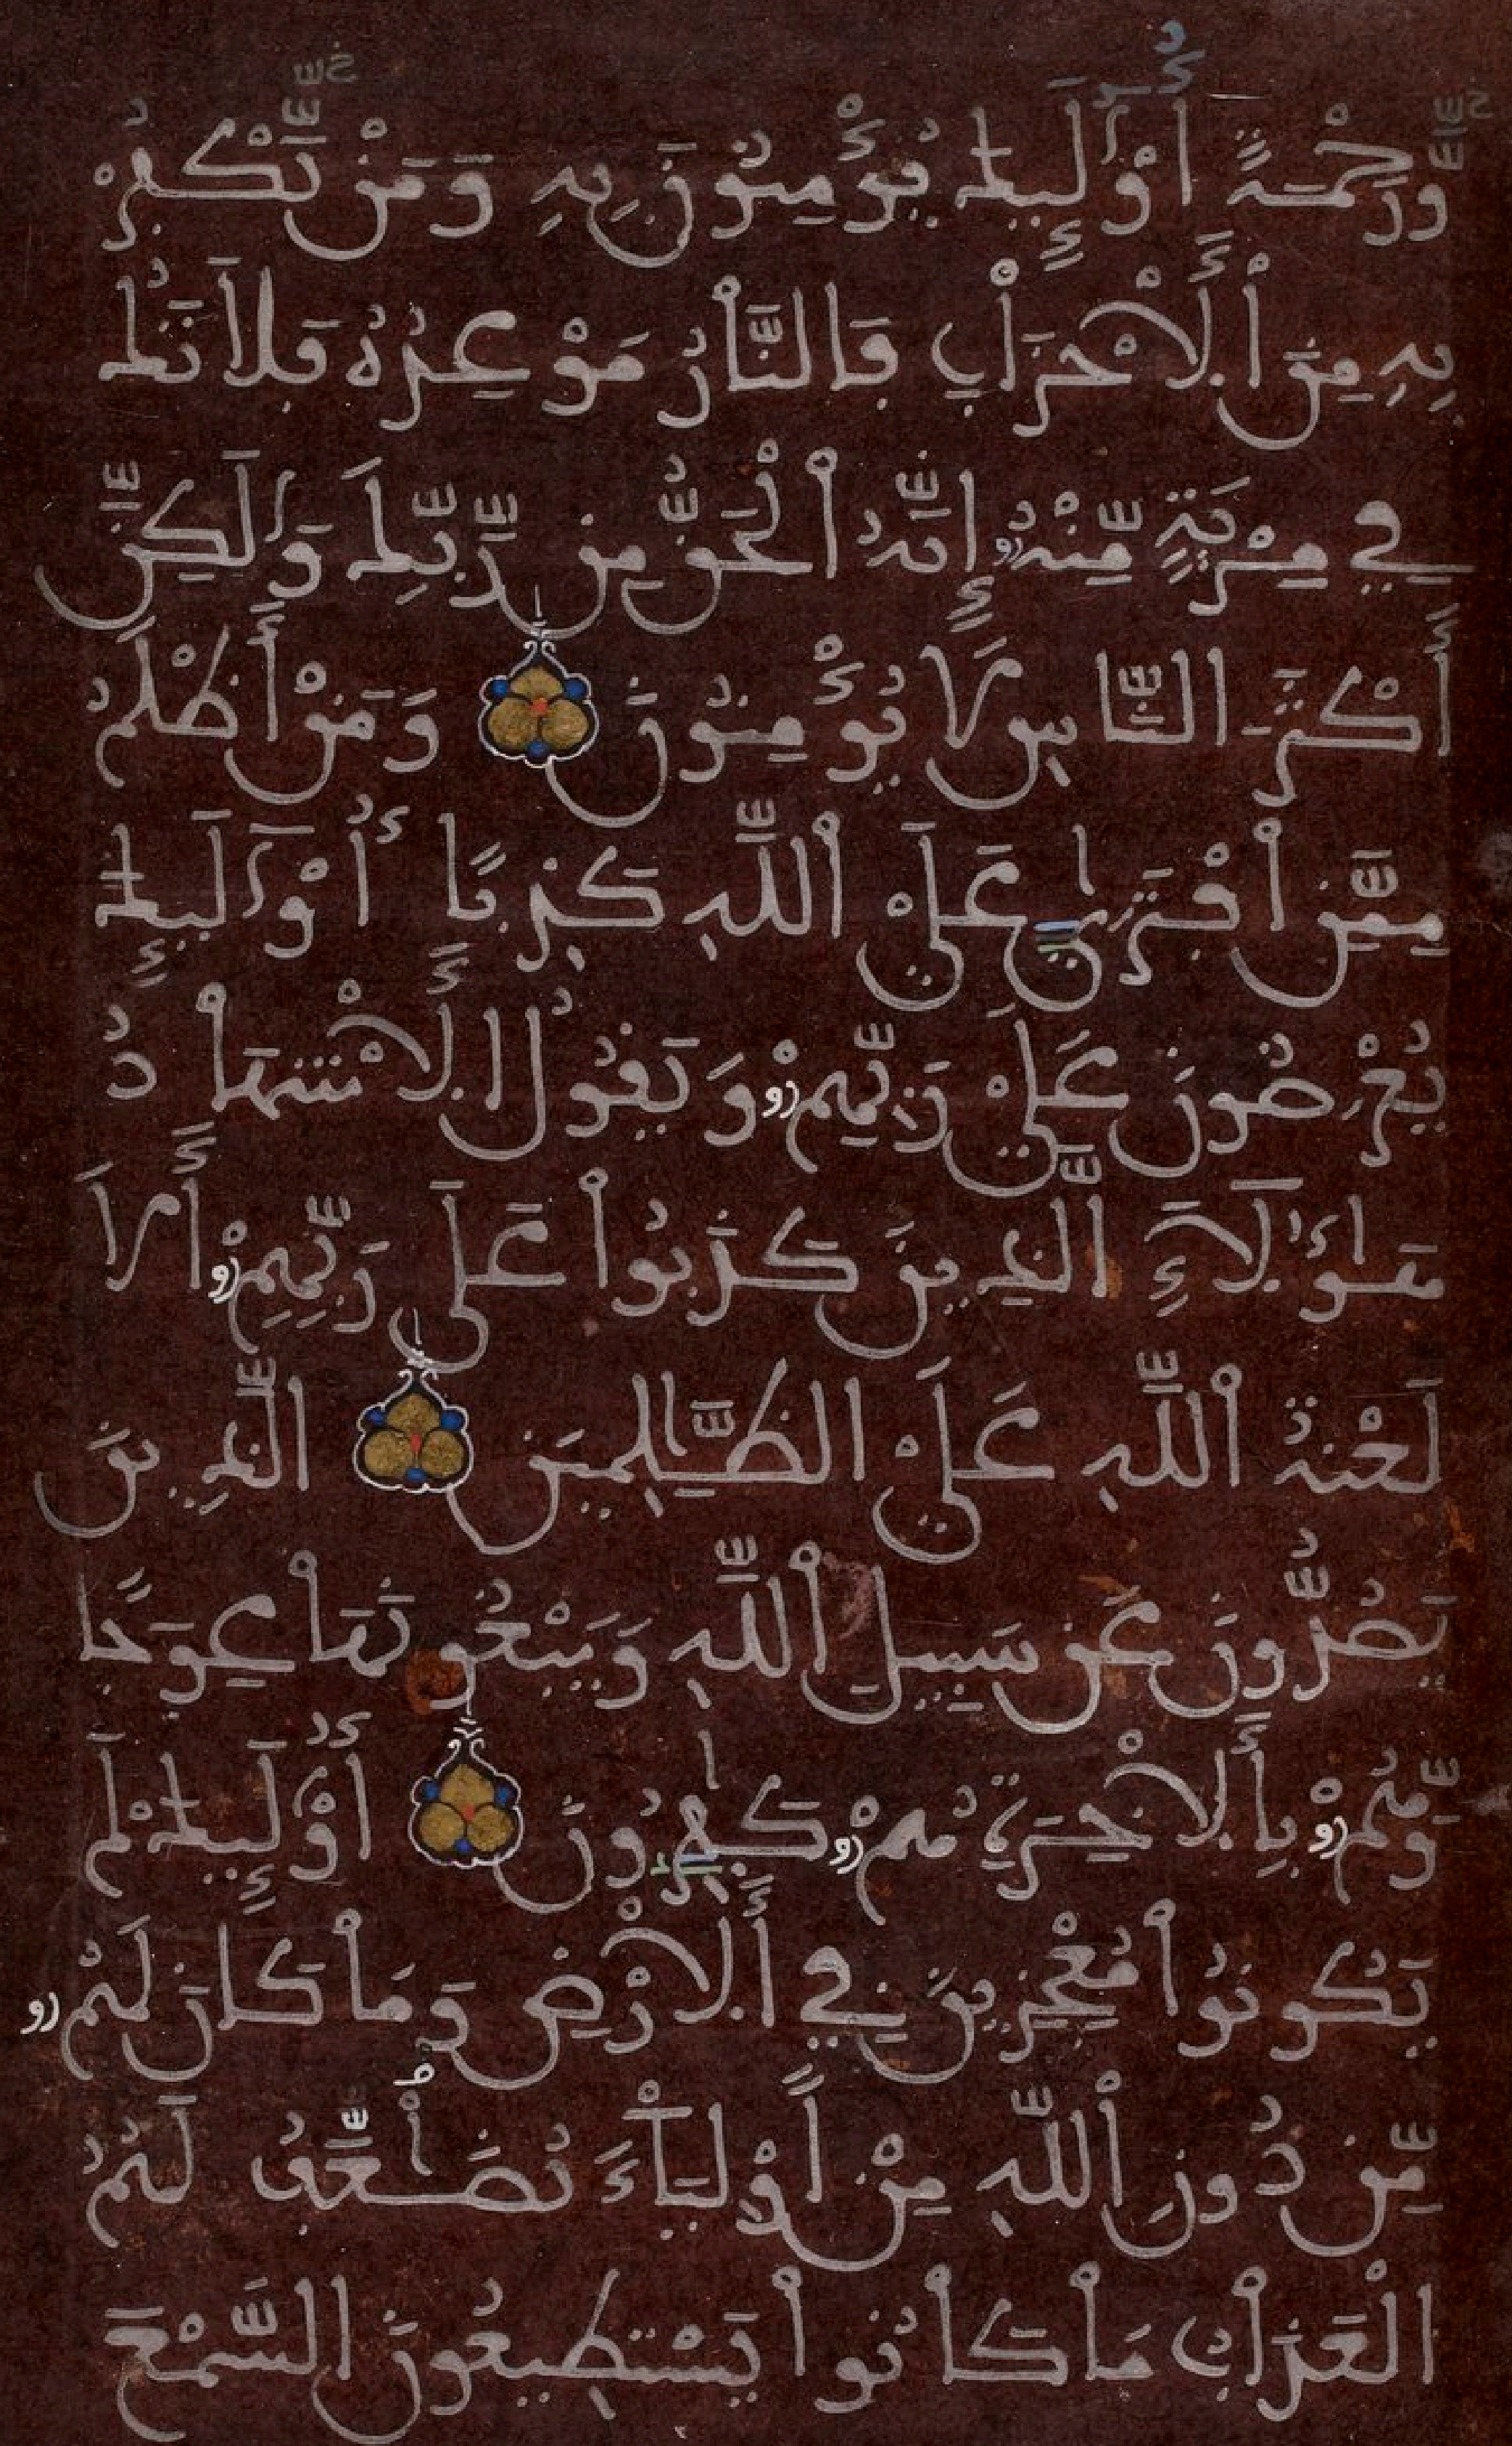 وَّرَحْمَةً اُوْلَٰٓئِكَ يُؤْمِنُونَ بِهِۦ وَمَنْ يَّكْفُرْ
بِهِۦ مِنَ اَ۬لَاحْزَابِ فَالنَّارُ مَوْعِدُهُۥ فَلَا تَكُ
فِے مِرْيَةٍ مِّنْهُ إِنَّهُ اُ۬لْحَقُّ مِن رَّبِّكَ وَلَٰكِنَّ
أَكْثَرَ اَ۬لنَّاسِ لَا يُؤْمِنُونَ وَمَنْ أَظْلَمُ
مِمَّنِ اِ۪فْتَر۪يٰ عَلَي اَ۬للَّهِ كَذِباً اُوْلَٰٓئِكَ
يُعْرَضُونَ عَلَيٰ رَبِّهِمْ وَيَقُولُ اُ۬لَاشْهَادُ
هَٰٓؤُلَآءِ اِ۬لذِينَ كَذَبُواْ عَلَيٰ رَبِّهِمُۥٓ أَلَا
لَعْنَةُ اُ۬للَّهِ عَلَي اَ۬لظَّٰلِمِينَ اَ۬لذِينَ
يَصُدُّونَ عَن سَبِيلِ اِ۬للَّهِ وَيَبْغُونَهَا عِوَجاً
وَهُم بِالَاخِرَةِ هُمْ كَٰفِرُونَ أُوْلَٰٓئِكَ لَمْ
يَكُونُواْ مُعْجِزِينَ فِے اِ۬لَارْضِ وَمَا كَانَ لَهُم
مِّن دُونِ اِ۬للَّهِ مِنَ اَوْلِيَآءَ يُضَٰعَفُ لَهُمُ
اُ۬لْعَذَابُ مَا كَانُواْ يَسْتَطِيعُونَ اَ۬لسَّمْعَ